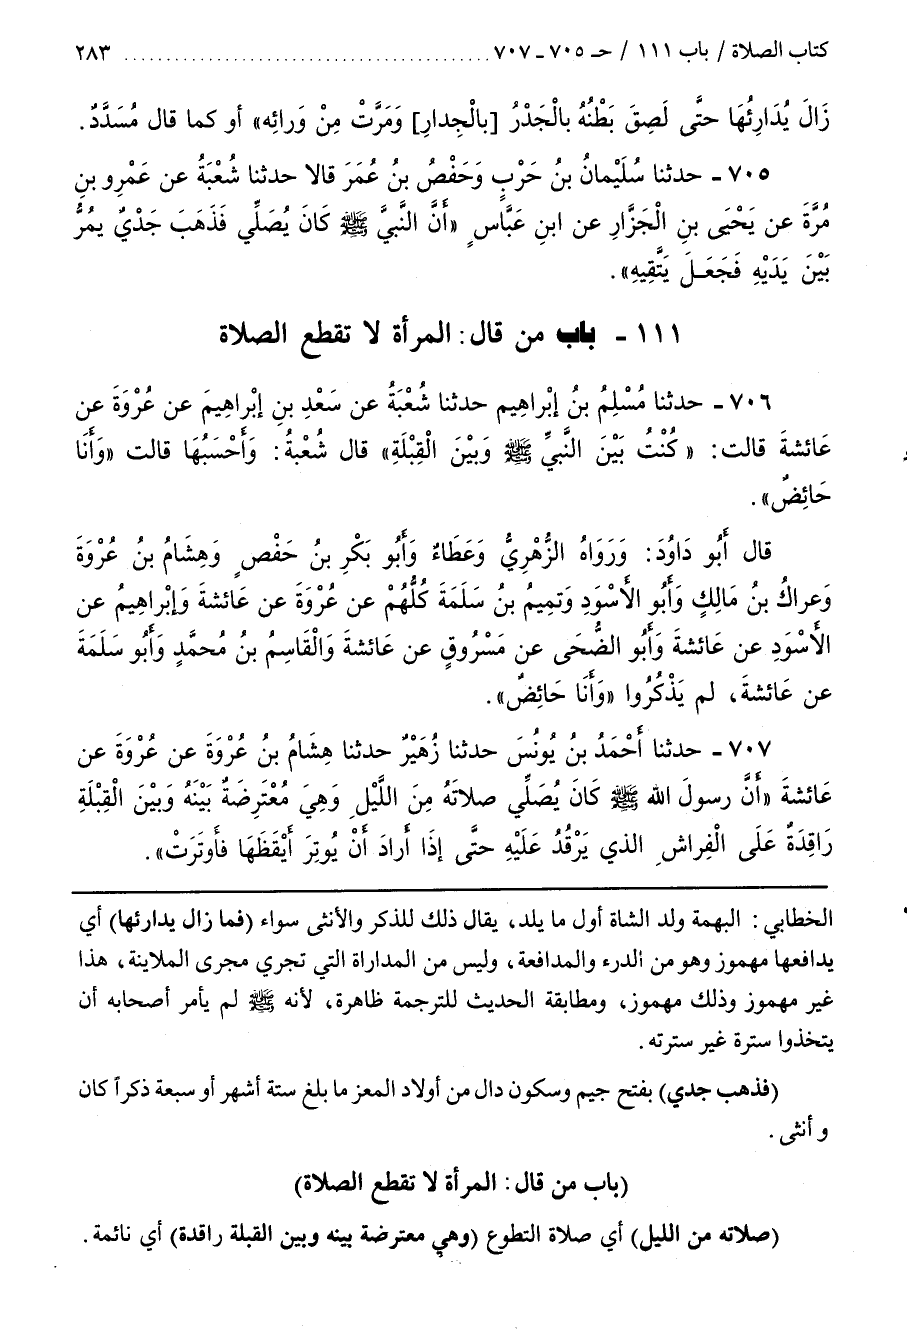 كتاب الصلاة / باب ١١١ / حـ ٧٠٥ ـ ٧٠٧ ........................................ ٢٨٣
زَالَ يُدَارِئُهَا حتَّى لَصِقَ بَطْنُهُ بالْجَدْرُ [بالْجِدارِ] وَمَرَّتْ مِنْ وَرائِه» أو كما قال مُسَدَّدٌ.
٧٠٥ ـ حدثنا سُلَيْمانُ بنُ حَرْبٍ وَحَفْصُ بنُ عُمَرَ قالا حدثنا شُعْبَةُ عن عَمْرِو بنِ
مُرَّةَ عن يَحْيَى بنِ الْجَزَّارِ عن ابنِ عَبَّاسٍ «أَنَّ النَّبيَّ ﷺ كَانَ يُصَلِّي فَذَهَبَ جَدْيٌ يمُرُّ
بَيْنَ يَدَيْهِ فَجَعَلَ يَتَّقِيهِ».
١١١ ـ باب من قال: المرأة لا تقطع الصلاة
٧٠٦ ـ حدثنا مُسْلِمُ بنُ إبْراهِيم حدثنا شُعْبَةُ عن سَعْدِ بنِ إبْراهِيمَ عن عُرْوَةَ عن
عَائشةَ قالت: « كُنْتُ بَيْنَ النَّبيِّ ﷺ وَبَيْنَ الْقِبْلَةِ» قال شُعْبةُ: وَأَحْسَبُهَا قالت «وَأَنَا
حَائِضٌ».
قال أَبُو دَاوُدَ: وَرَوَاهُ الزُّهْرِيُّ وَعَطَاءٌ وَأَبُو بَكْرِ بنُ حَفْصٍ وَهِشَامُ بنُ عُرْوَةَ
وَعراكُ بنُ مَالِكٍ وَأَبُو الأَسْوَدِ وَتمِيمُ بنُ سَلَمَةَ كُلُّهُمْ عن عُرْوَةَ عن عَائشةَ وَإبْراهِيمُ عن
الأَسْوَدِ عن عَائشةَ وَأَبُو الضُّحَى عن مَسْرُوقٍ عن عَائشةَ وَالْقَاسِمُ بنُ مُحمَّدٍ وَأَبُو سَلَمَةَ
عن عَائشةَ، لم يَذْكُرُوا «وَأَنَا حَائِضٌ».
٧٠٧ ـ حدثنا أَحْمَدُ بنُ يُونُسَ حدثنا زُهَيْرٌ حدثنا هِشَامُ بنُ عُرْوَةَ عن عُرْوَةَ عن
عَائشةَ «أَنَّ رسولَ الله ﷺ كَانَ يُصَلِّي صلاتَهُ مِنَ اللَّيْلِ وَهِيَ مُعْتَرِضَةٌ بَيْنَهُ وَبَيْنَ الْقِبْلَةِ
رَاقِدَةٌ عَلَى الْفِراشِ الذي يَرْقُدُ عَلَيْهِ حتَّى إذَا أَرادَ أَنْ يُوتِرَ أَيْقَظَهَا فأَوتَرَتْ».
الخطابي: البهمة ولد الشاة أول ما يلد، يقال ذلك للذكر والأنثى سواء (فما زال يدارئها) أي
يدافعها مهموز وهو من الدرء والمدافعة، وليس من المداراة التي تجري مجرى الملاينة، هذا
غير مهموز وذلك مهموز، ومطابقة الحديث للترجمة ظاهرة، لأنه ﷺ لم يأمر أصحابه أن
يتخذوا سترة غير سترته.
(فذهب جدي) بفتح جيم وسكون دال من أولاد المعز ما بلغ ستة أشهر أو سبعة ذكراً كان
و أنثى.
(باب من قال: المرأة لا تقطع الصلاة)
(صلاته من الليل) أي صلاة التطوع (وهي معترضة بينه وبين القبلة راقدة) أي نائمة.